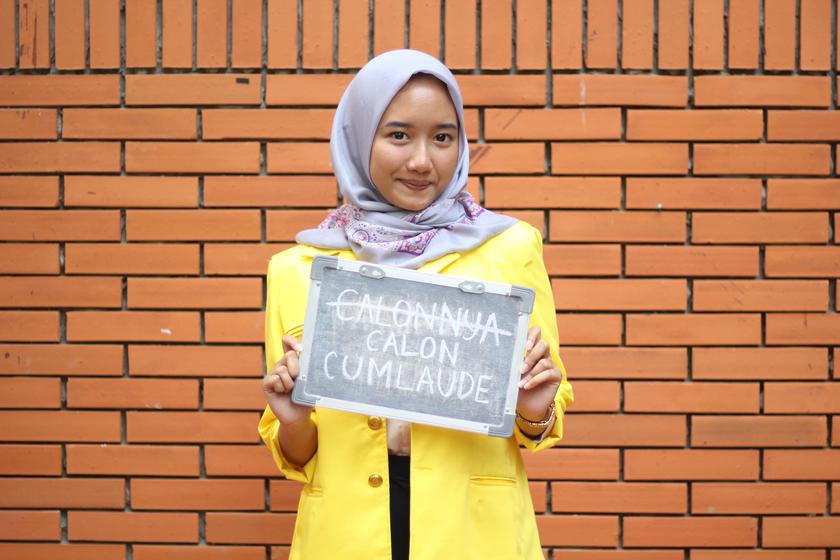 CALONNYA
CALON
CUMLAUDE